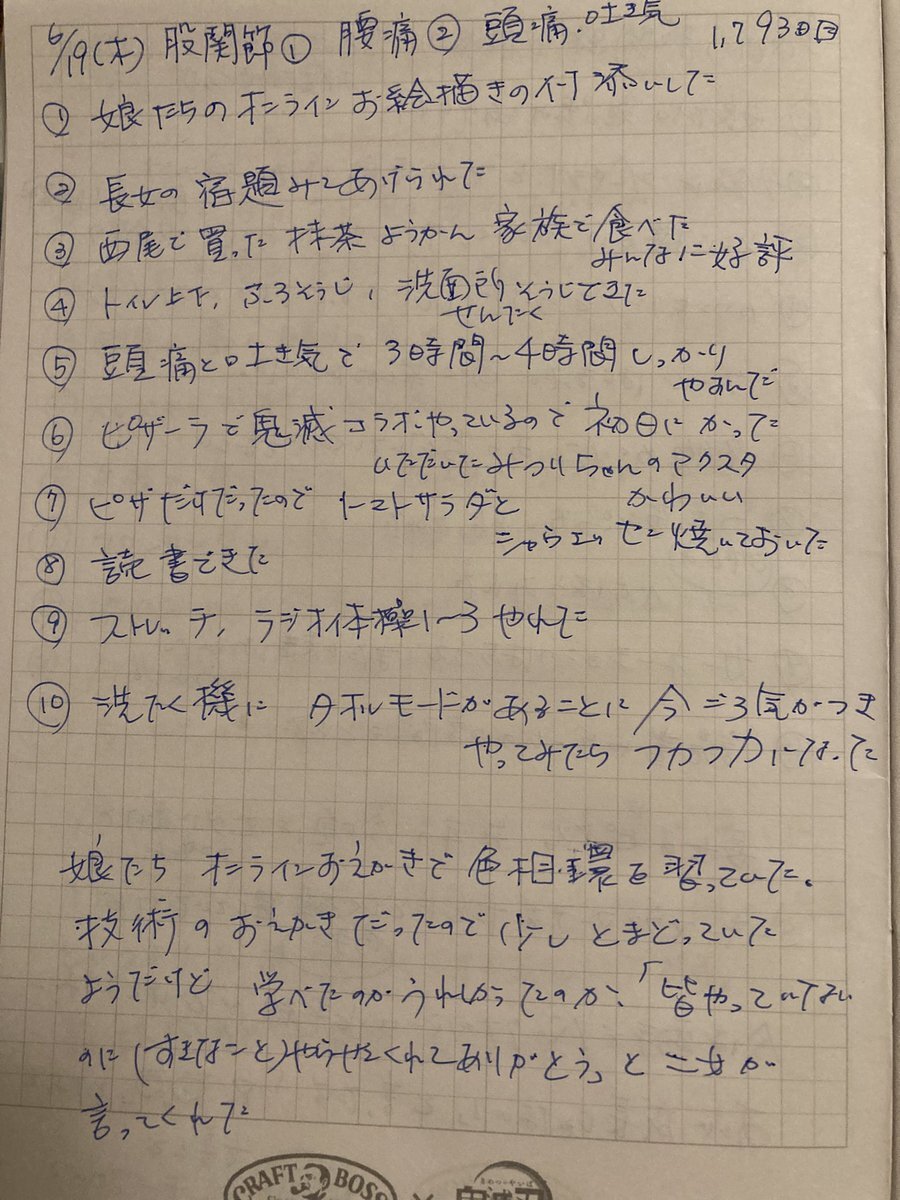 6/19(木) 股関節① 腰痛② 頭痛.吐き気 1,793日目
① 娘たちのオンラインお絵描きの付添いした
② 長女の宿題みてあげられた
③ 西尾で買った抹茶ようかん家族で食べた
みんなに好評
④ トイレ上下、ふろそうじ、洗面所そうじできた
せんたく
⑤ 頭痛と吐き気で3時間〜4時間しっかり
やすんだ
⑥ ピザーラで鬼滅コラボやっているので初日にかって
いただいたみつりちゃんのアクスタ
かわいい
⑦ ピザだけだったのでトマトサラダと
シャウエッセン焼いておいた
⑧ 読書できた
⑨ ストレッチ、ラジオ体操1〜3やれた
⑩ 洗たく機にタオルモードがあることに今ごろ気がつき
やってみたらフカフカになった
娘たちオンラインおえかきで色相環を習っていた。
技術のおえかきだったので少しとまどっていた
ようだけど学べたのがうれしかったのか、「皆やっていない
のに(すきなこと)やらせてくれてありがとう」と二女が
言ってくれた
CRAFT BOSS
×
鬼滅